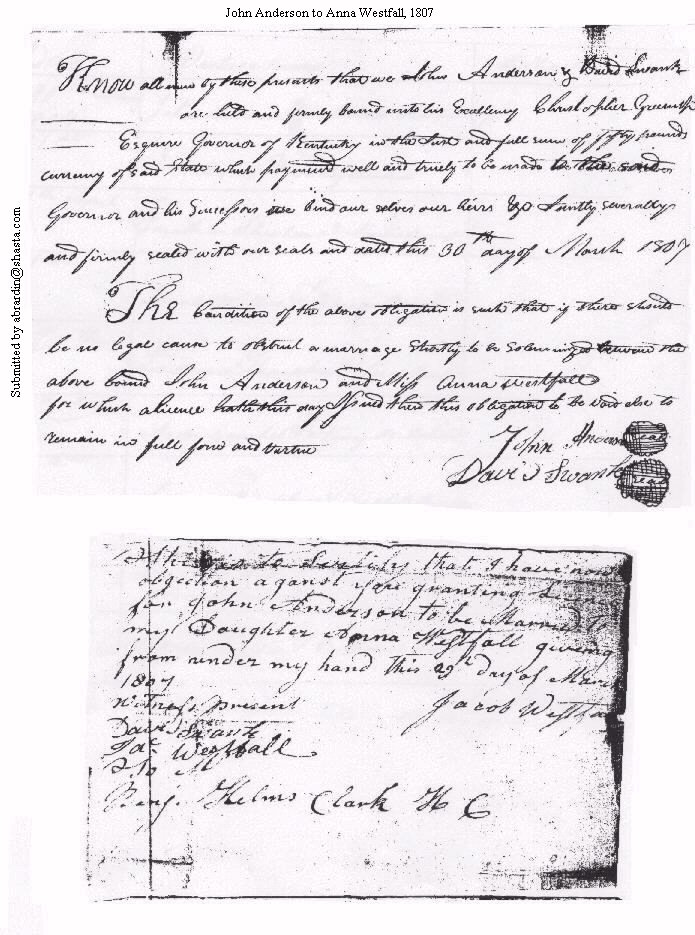 John Anderson to Anna Westfall, 1807
Know all men by these presents that we John Anderson & David Swank
are held and firmly bound unto his Excellency Christopher Greenup
Esquire Governor of Kentucky in the Just and full sum of fifty pounds
currency of said State which payment well and truely to be made to the said
Governor and his Successors we bind our selves our heirs &c Jointly severally
and firmly sealed with our seals and dated this 30th day of March 1807
The Condition of the above obligation is such that if there should
be no legal cause to obstruct a marriage shortly to be Solemnized between the
above bound John Anderson and Miss Anna Westfall
for which a licence hath this day Issued then this obligation to be void else to
remain in full force and virtue
John Anderson seal
David Swank seal
Submitted by abrardin@shasta.com
this is to Sertify that I have no
objection aganst you granting
for John Anderson to be Married to
my Daughter Anna Westfall giveing
from under my hand this 29th day of Mar
1807
Witness present
Jacob Westfa
David Swank
Westfall
Benj. Helms Clark H C